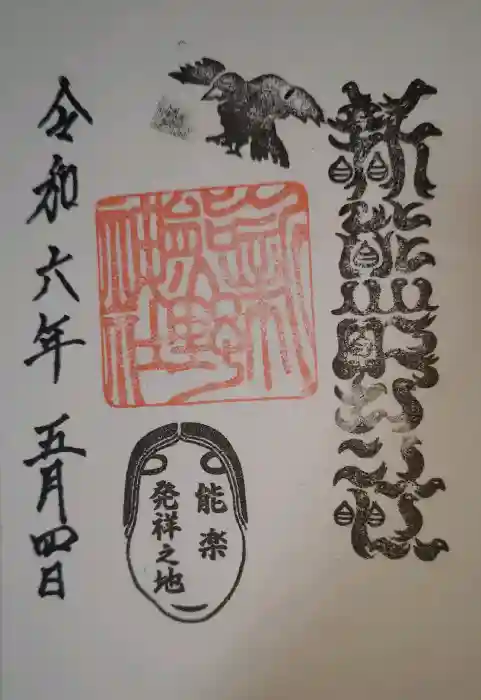 新熊野神社
新熊野神社
能楽
発祥之地
令和六年 五月四日